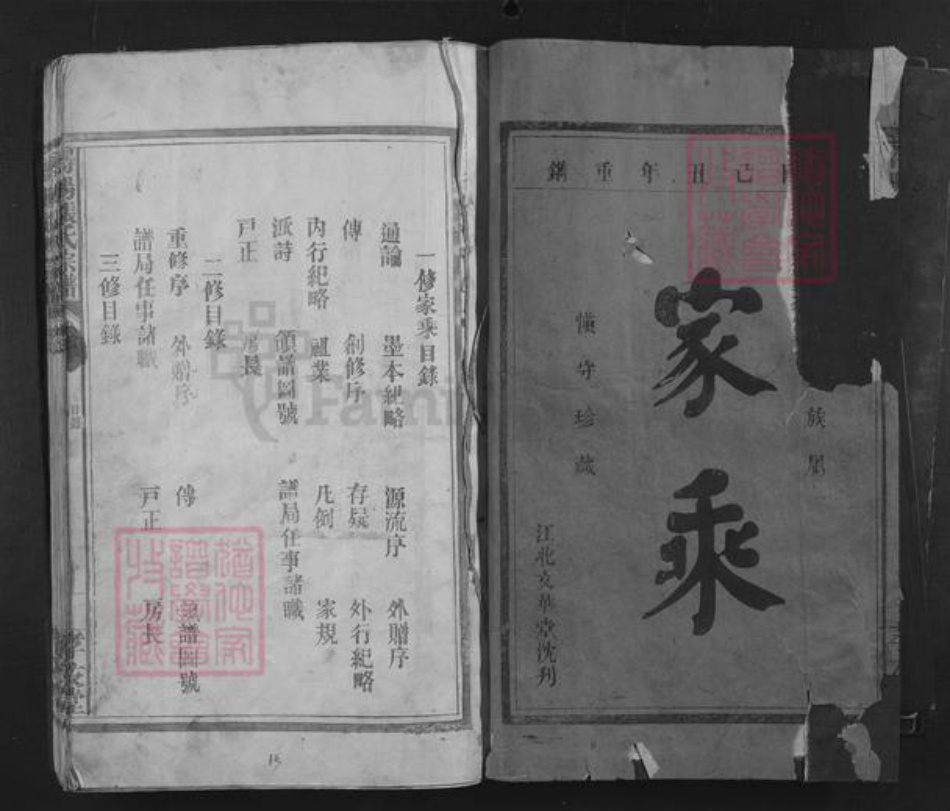 己丑年重鐫
族屬
家乘
慎守珍藏
江北文華堂沈刊
一修家乘目錄
通論 墨本紀略 源流序 外贈序
傳 創修序 存疑 外行紀略
內行紀略 祖業 凡例 家規
派詩 領譜圖號 譜局任事諸職
戶正 房長
二修目錄
重修序 外贈序 傳 領譜圖號
譜局任事諸職 戶正 房長
三修目錄
氏宗譜
目錄
猶他家譜學會收藏
猶他家譜學會收藏
Fami